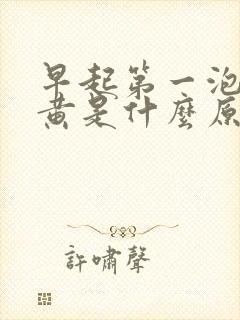 早起第一泡
黄是什麼原
許嘯聲